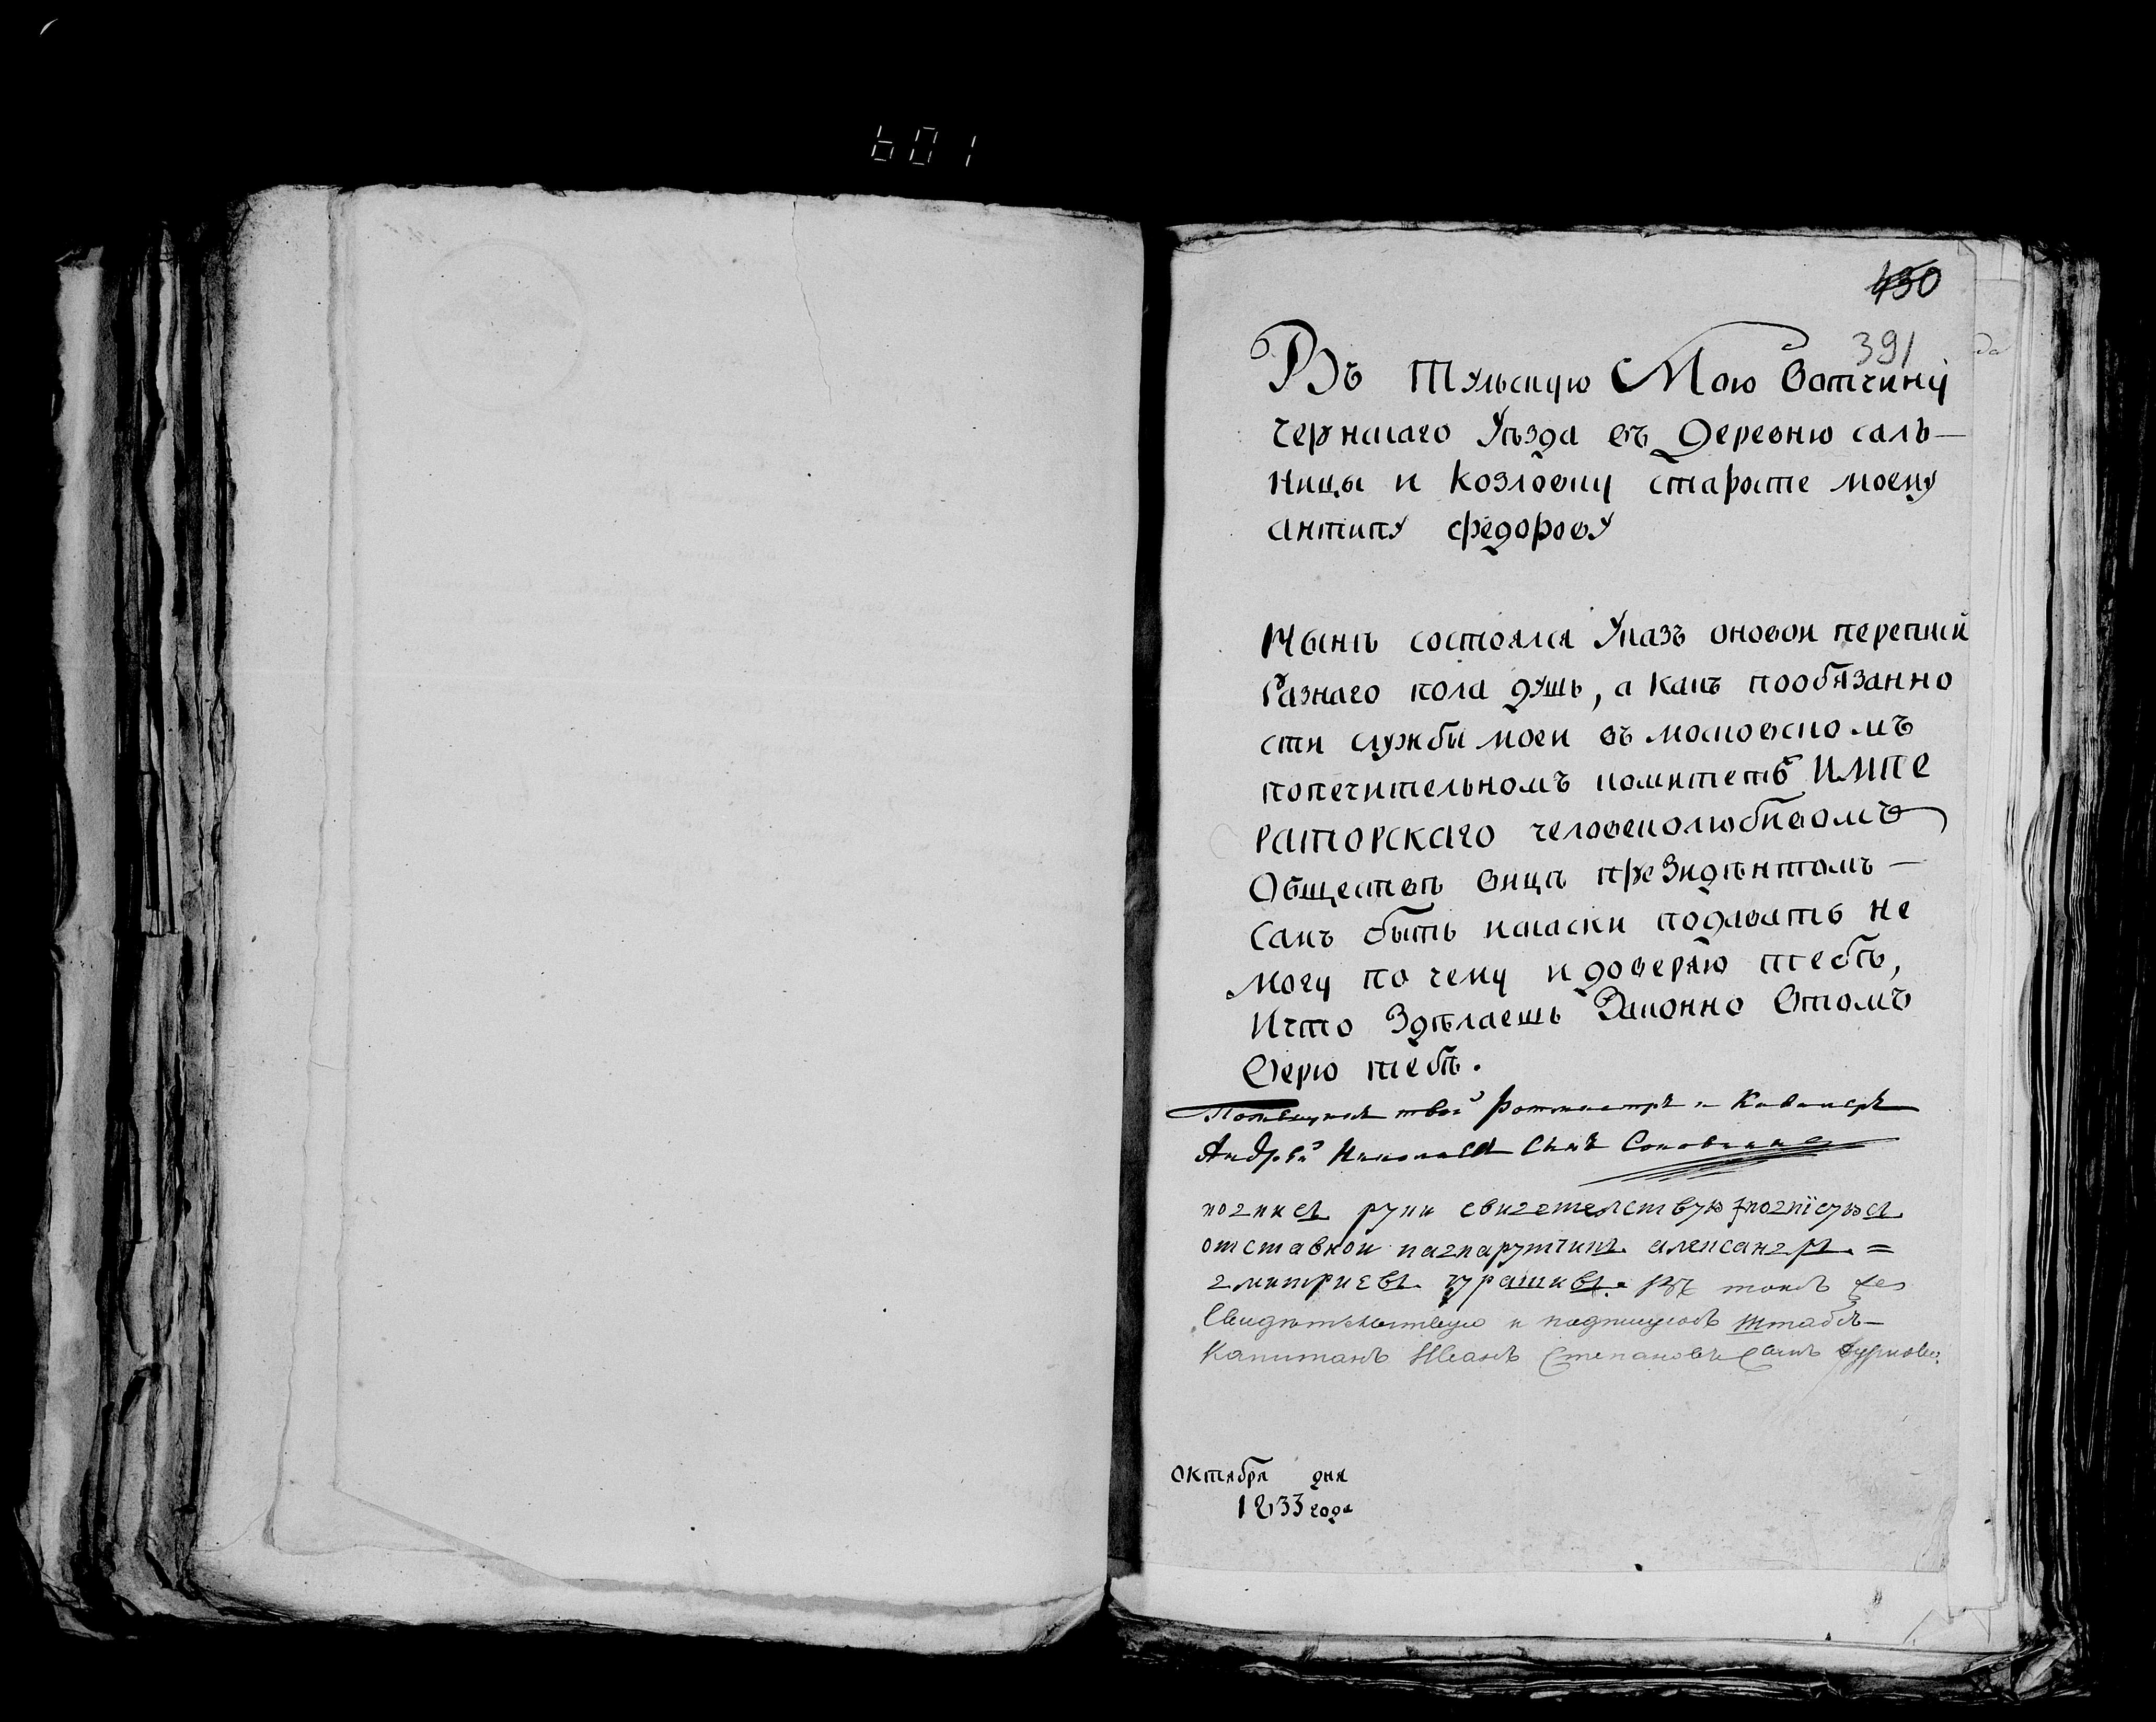 601
450
391
Въ Тульскую Мою вотчину
чернскаго Уѣзда въ Деревню саль-
ницы и Козловку старосте моему
антипу федорову
Нынѣ состоялся Указъ оновои переписи
Разнаго пола душь, а какъ пообязанно
сти службы моеи въ московскомъ
попечительномъ комитетѣ ИМПЕ
РАТОРСКАГО человеколюбивомъ
Обществѣ вицъ президѣнтомъ -
Самъ быть искаски подавать не
могу по чему и доверяю тебѣ,
Ичто Здѣлаешь Законно Втомъ
Верю тебѣ.
Помещикъ твой Ротмистръ и Кавалеръ
Андрѣй Николаевъ Сынъ
потписъ руки свидетелствую подпісуюсъ
отставнои падпарутчикъ александръ =
дмитриевъ
Свидѣтельствую и подписуюсь Штабсъ-
Капитанъ Иванъ Степановъ Сынъ
октября дня
1833 года